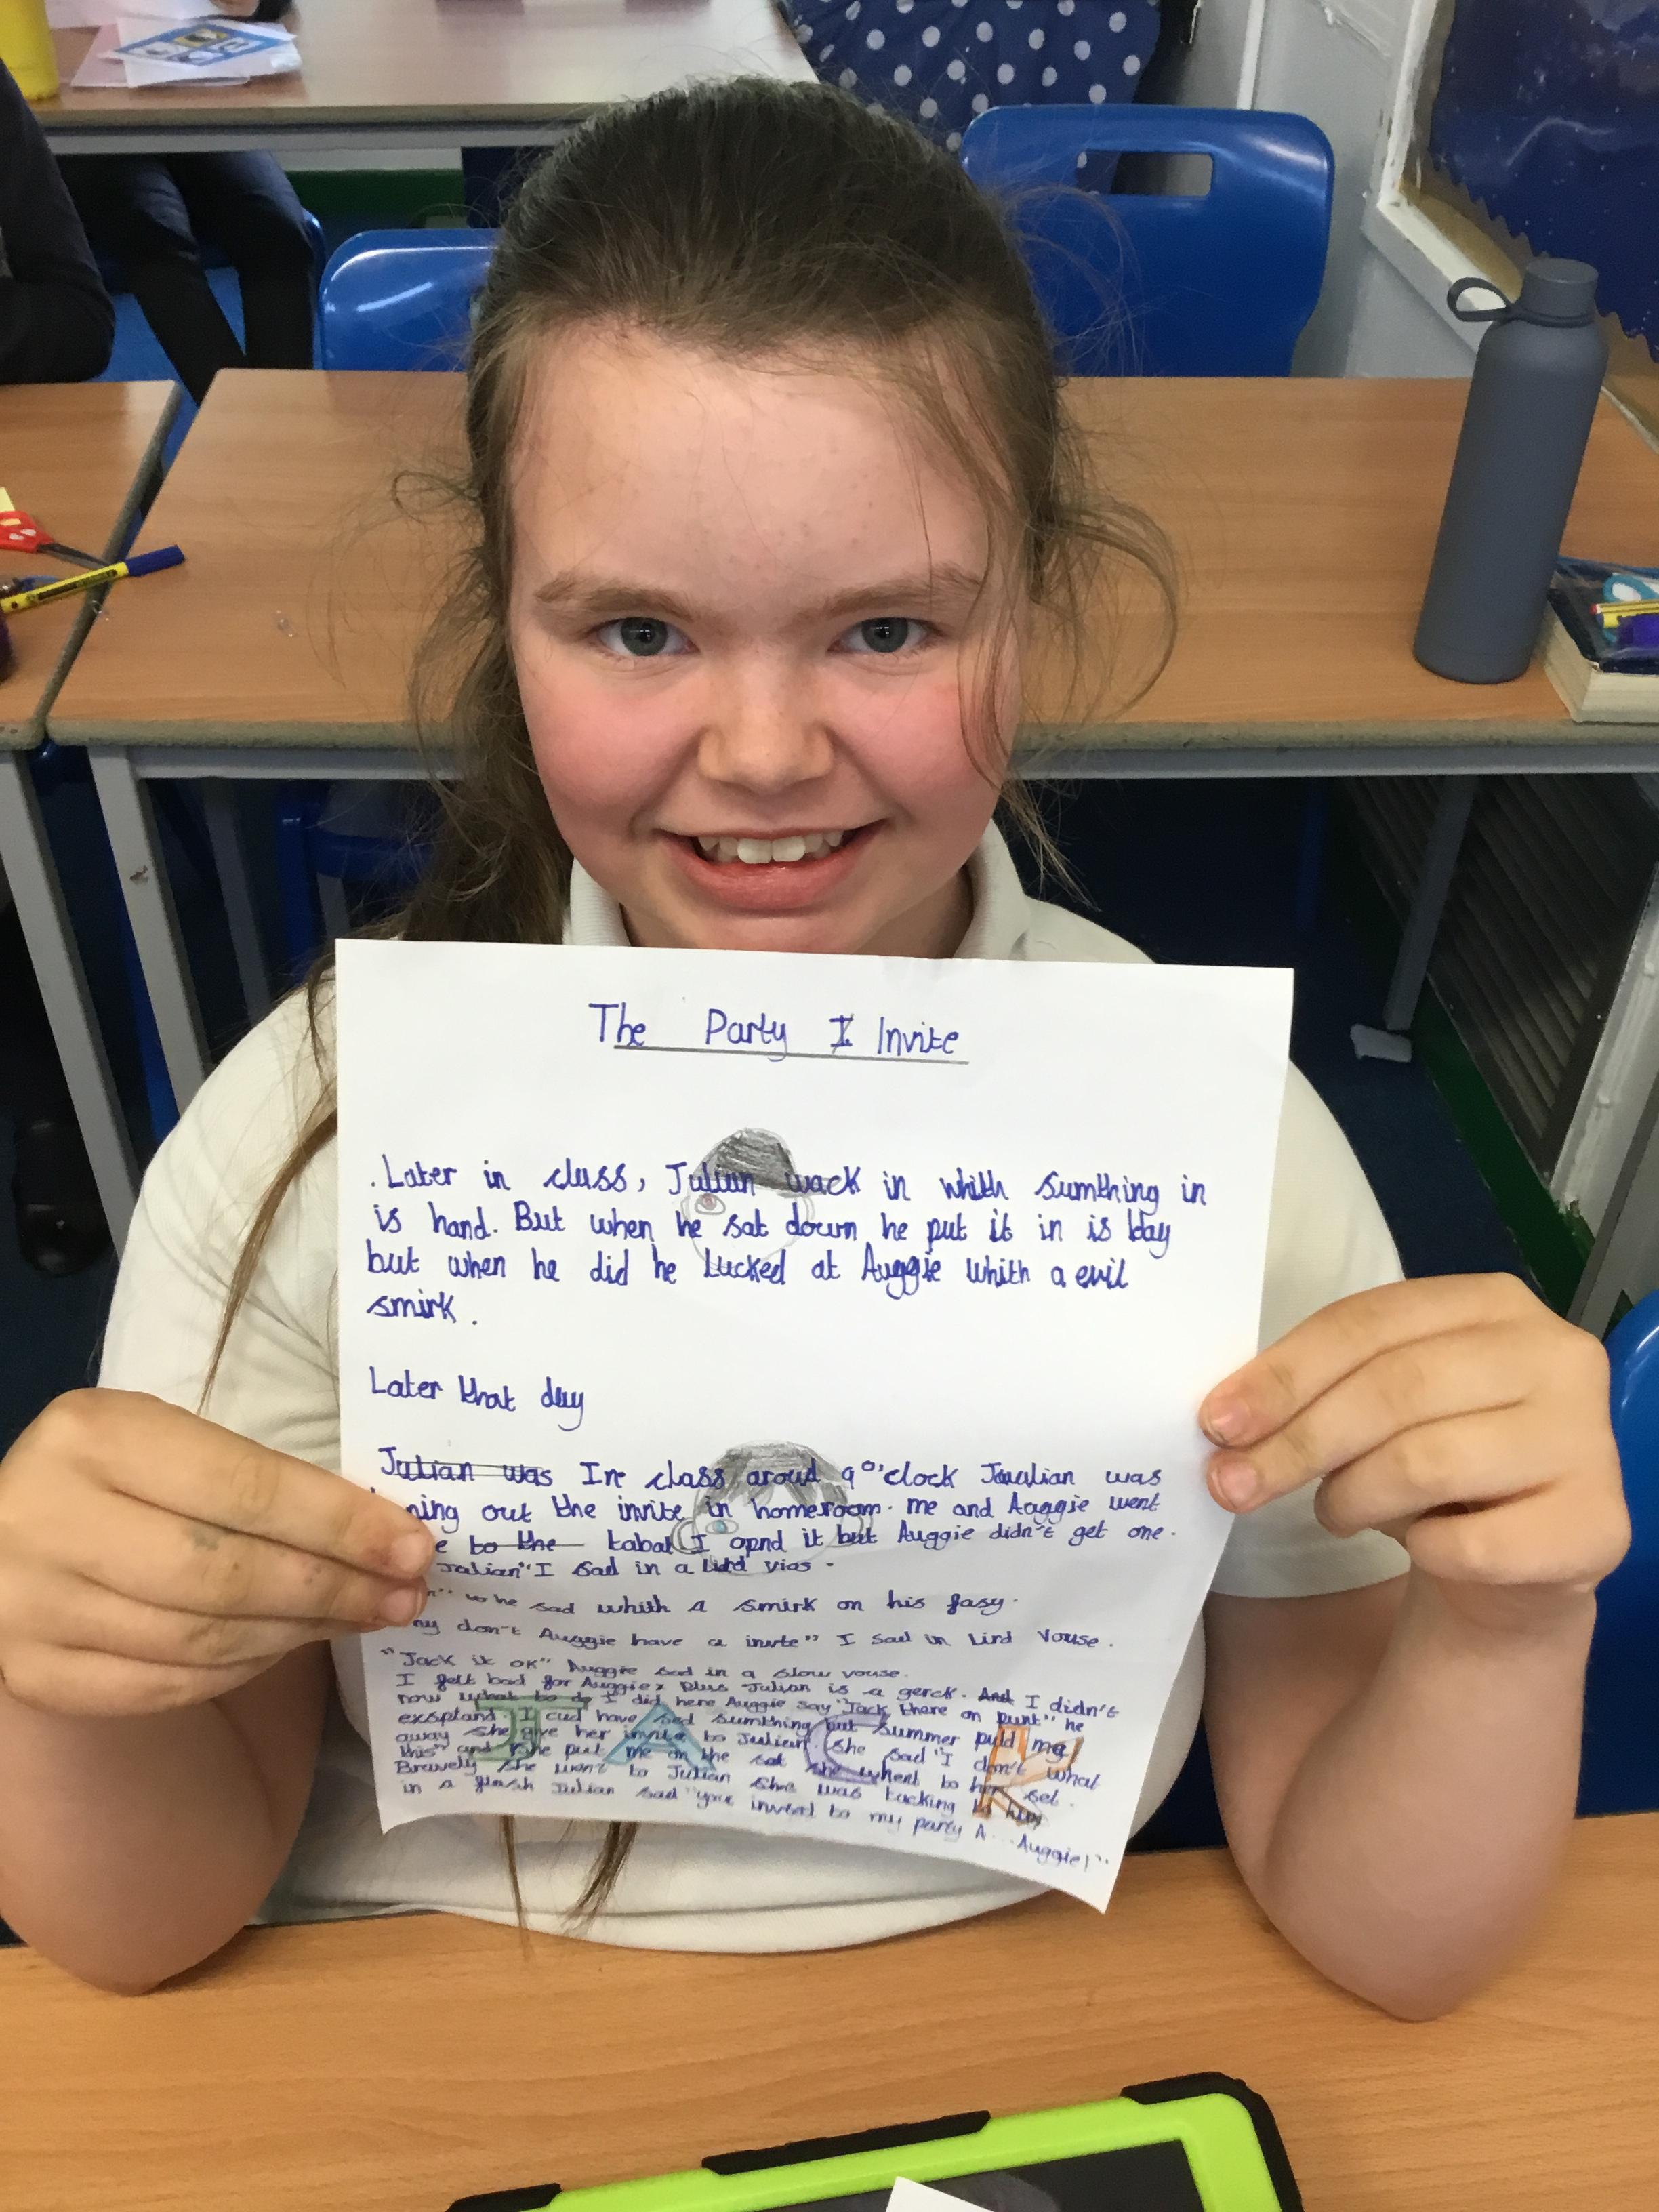 The Party Invite
. Later in class, Julian wack in whith sumthing in
is hand. But when he sat down he put it in is bay
but when he did he lucked at Auggie whith a evil
smirk.
Later that day
Julian was In class aroud 9°'clock Joulian was
out the invite in homeroom. me and Auggie went
to the tabal I opnd it but Auggie didn't get one.
Jalian" I sad in a
he sad whith a smirk on his fasy.
don't Auggie have a invite" I sad in Lird Vouse.
"Jack it OK" Auggie sad in a slow vouse.
I felt bad for Auggie, plus Julian is a gerck. And I didn't
now what to do I did here Auggie say "Jack there on punt" he
expland. I cud have sed sumthing but summer pulld me
away she give her invite to Julian. she sad "I don't what
this" and she put me on the sat she whent to her set.
Bravely she went to Julian she was tucking to him
in a flash Julian sad "you invited to my party A...Auggie!"
JACK